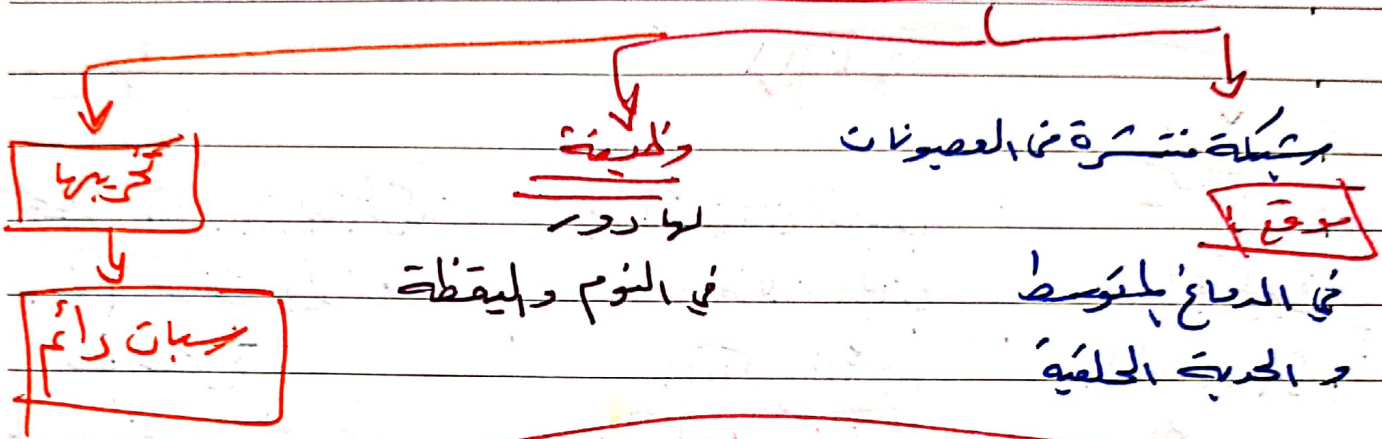 شبكة منتشرة من العصبونات
موقع :
في الدماغ المتوسط
و الحدبة الحلقية
وظيفة
لها دور
في النوم واليقظة
تخريبها
سبات دائم